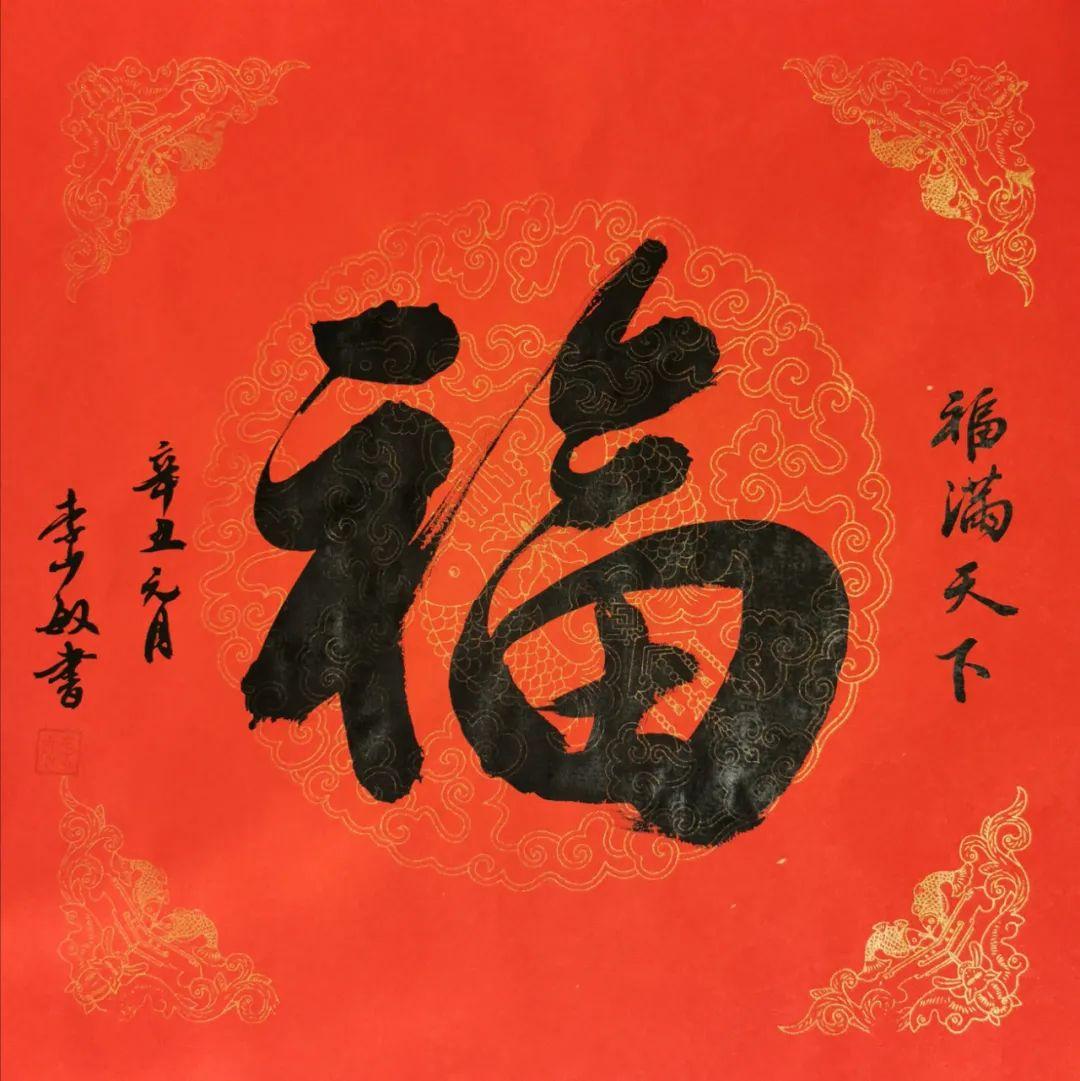 福满天下
福
辛丑元月
李少敏书